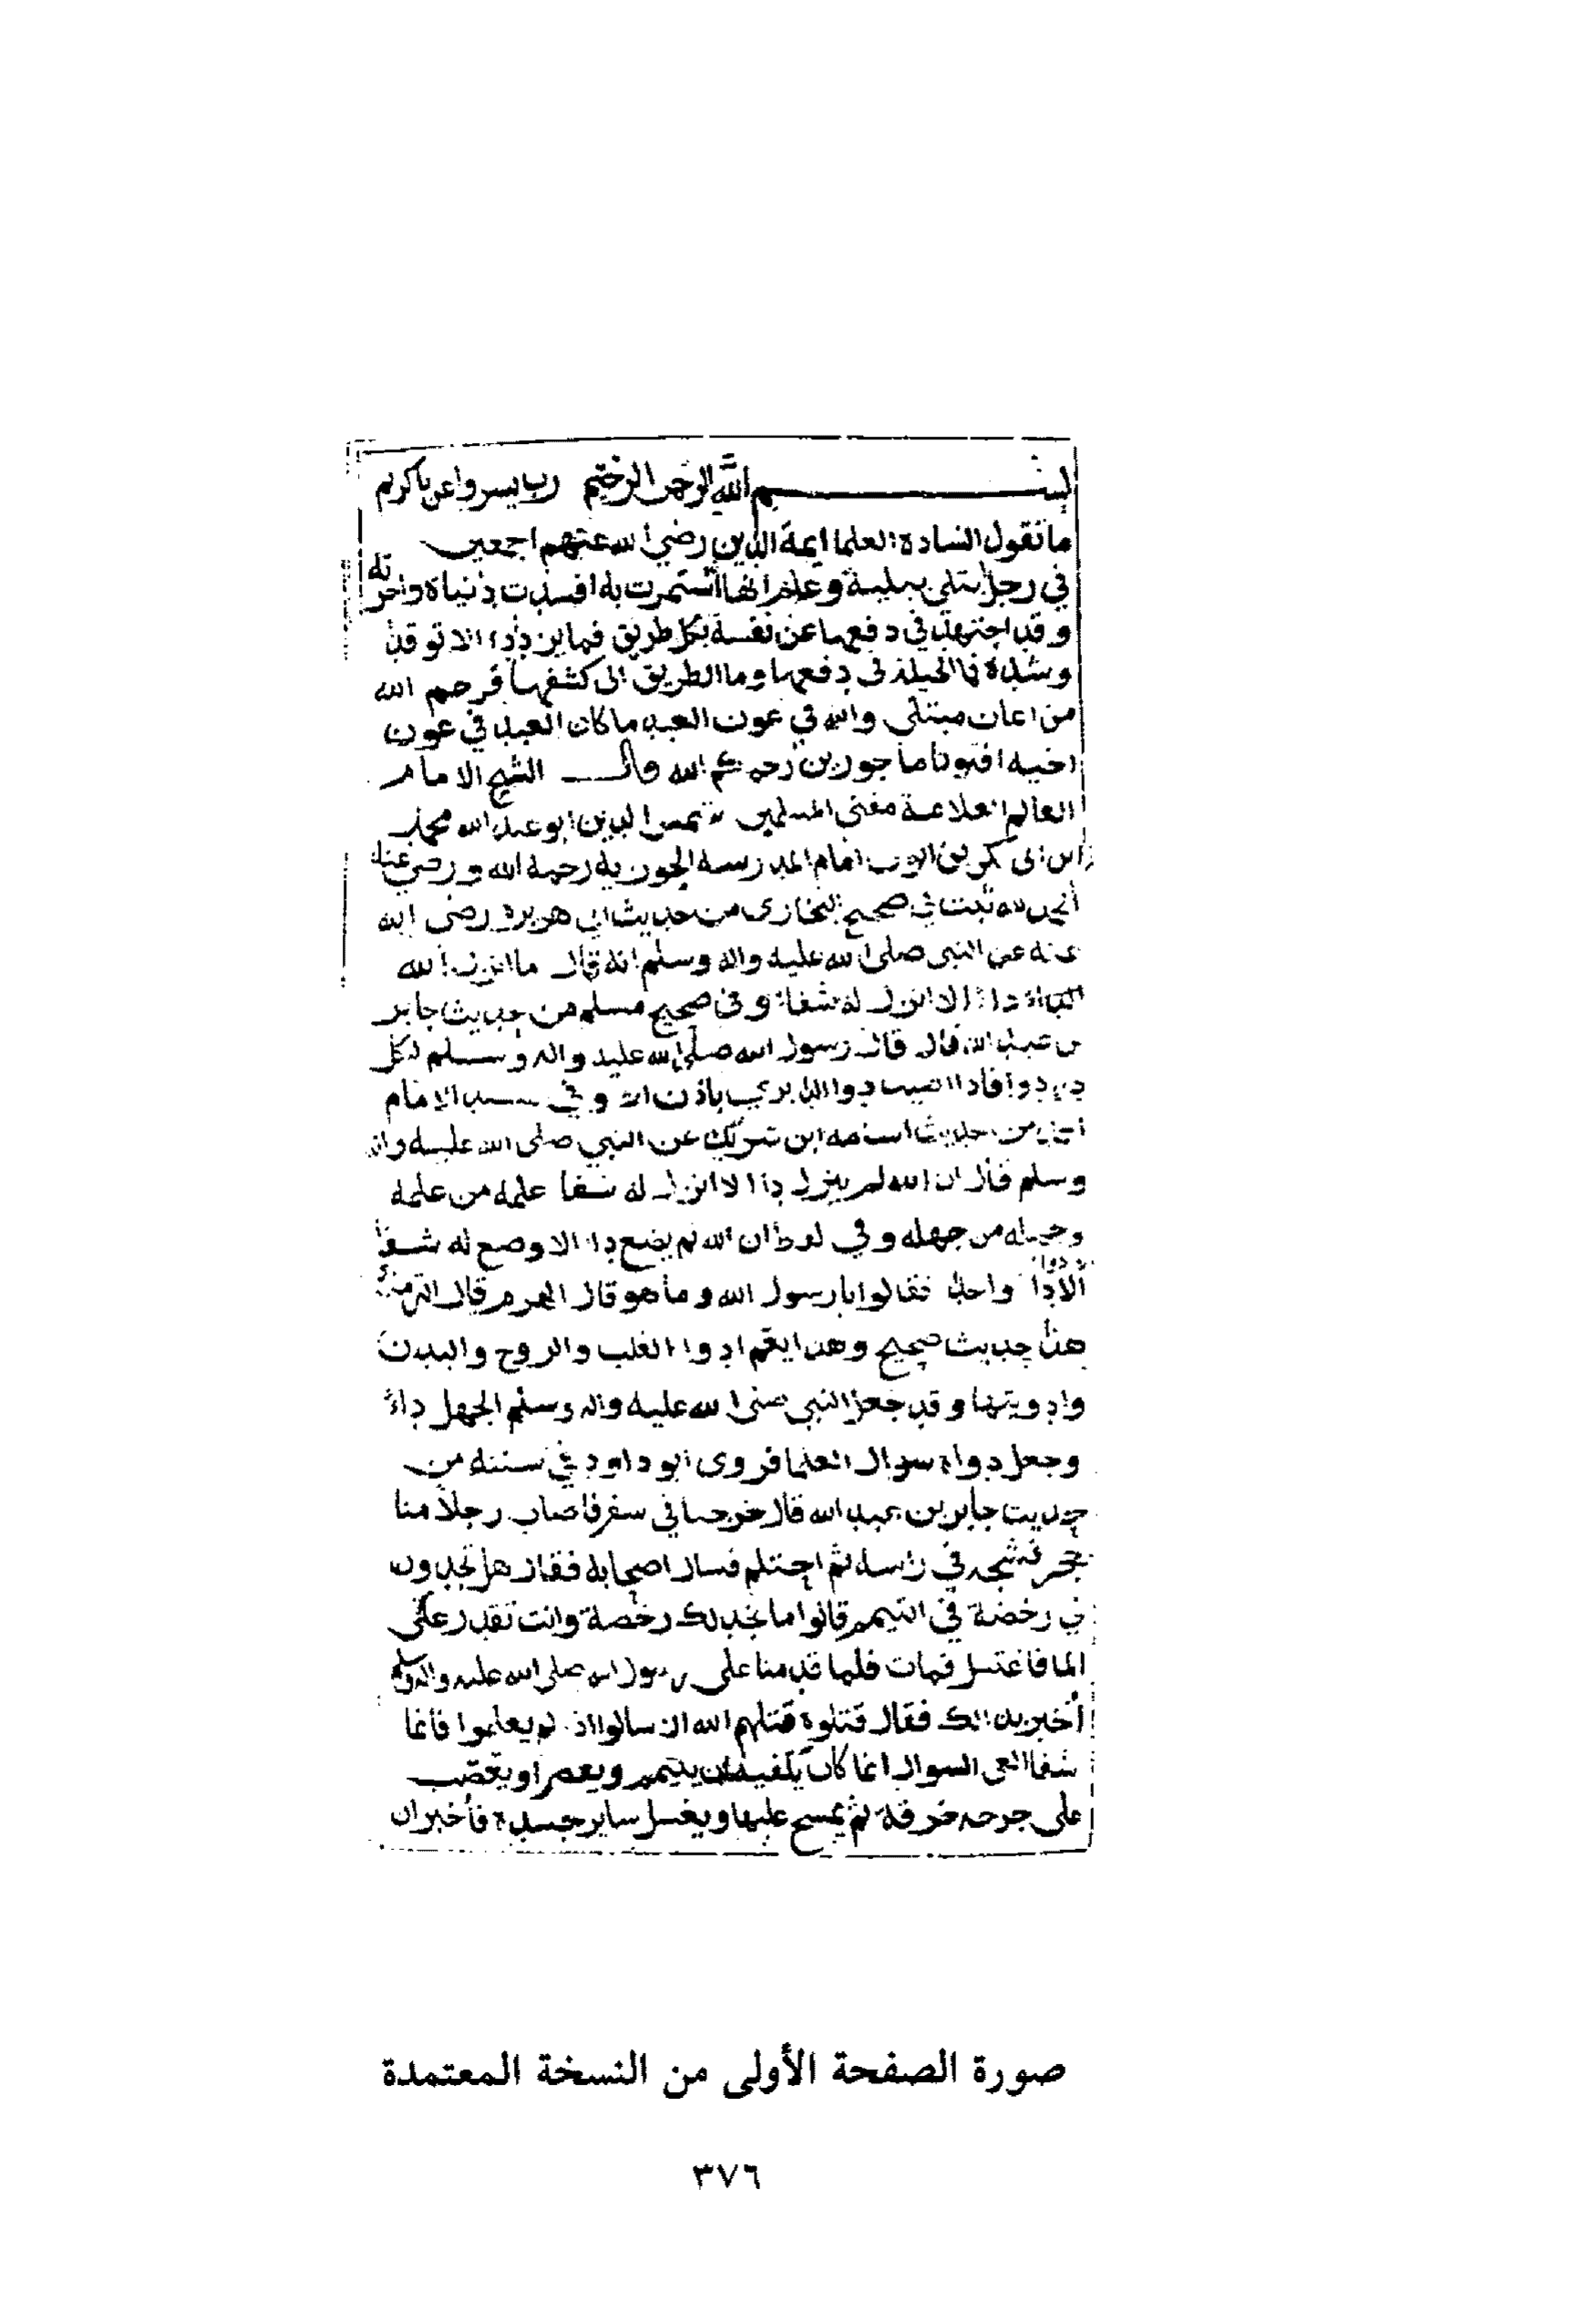 بسم الله الرحمن الرحيم رب يسر واعن ياكريم
ما تقول السادة العلما ايمة الدين رضي الله عنهم اجمعين
في رجل ابتلى ببلية وعلم انها استمرت به افسدت دنياه واخرته
وقد اجتهد في دفعها عن نفسه بكل طريق فما يزداد الا توقدا
وشدة فما الحيلة في دفعها وما الطريق الى كشفها فرحم الله
من اعان مبتلى والله في عون العبد ما كان العبد في عون
اخيه افتونا ماجورين رحمكم الله قال الشيخ الامام
العالم العلامة مفتى المسلمين شمس الدين ابو عبد الله محمد
ابن ابى بكر بن ايوب امام المدرسة الجوزية رحمه الله ورضي عنه
الحمد لله ثبت في صحيح البخارى من حديث ابي هريرة رضى الله
عنه عن النبى صلى الله عليه واله وسلم انه قال ما انزل الله
داء الا انزل له شفاء وفى صحيح مسلم من حديث جابر
بن عبد الله قال قال رسول الله صلى الله عليه واله وسلم لكل
داء دوا فاذا اصيب دوا الدا برى باذن الله وفي مسند الامام
احمد من حديث اسامه ابن شريك عن النبي صلى الله عليه واله
وسلم قال ان الله لم ينزل دا الا انزل له شفا علمه من علمه
وجهله من جهله وفي لفظ ان الله لم يضع دا الا وضع له شفا
او دوا
الا دا واحد فقالوا يا رسول الله وما هو قال الهرم قال الترمذي
هذا حديث صحيح وهذا يعم ادوا القلب والروح والبدن
وادويتها وقد جعل النبي صلى الله عليه واله وسلم الجهل داء
وجعل دواه سوال العلما فروى ابو داود في سننه من
حديث جابر بن عبد الله قال خرجنا في سفر فاصاب رجلا منا
حجر فشجه في راسه ثم احتلم فسال اصحابه فقال هل تجدون
لي رخصة في التيمم قالوا ما نجد لك رخصة وانت تقدر على
الما فاغتسل فمات فلما قدمنا على رسول الله صلى الله عليه واله وسلم
أخبر بذلك فقال قتلوه قتلهم الله الا سالوا اذ لم يعلموا فانما
شفا العى السوال انما كان يكفيه ان يتيمم ويعصر او يعصب
على جرحه خرقة ثم يمسح عليها ويغسل ساير جسده فأخبر ان
صورة الصفحة الأولى من النسخة المعتمدة
٣٧٦